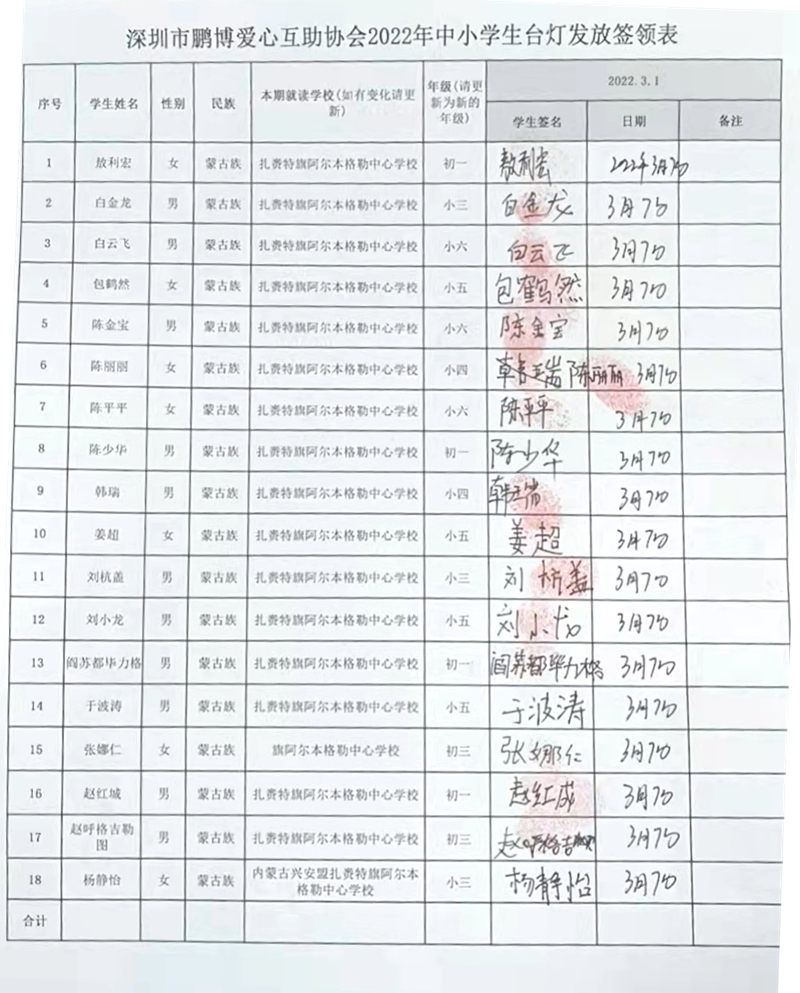 深圳市鹏博爱心互助协会2022年中小学生台灯发放签领表
序号 学生姓名 性别 民族 本期就读学校(如有变化请更新) 年级(请更新为新的年级) 2022.3.1
学生签名 日期 备注
1 敖利宏 女 蒙古族 扎赉特旗阿尔本格勒中心学校 初一 敖利宏 2022年3月7日
2 白金龙 男 蒙古族 扎赉特旗阿尔本格勒中心学校 小三 白金龙 3月7日
3 白云飞 男 蒙古族 扎赉特旗阿尔本格勒中心学校 小六 白云飞 3月7日
4 包鹤然 女 蒙古族 扎赉特旗阿尔本格勒中心学校 小五 包鹤然 3月7日
5 陈金宝 男 蒙古族 扎赉特旗阿尔本格勒中心学校 小六 陈金宝 3月7日
6 陈丽丽 女 蒙古族 扎赉特旗阿尔本格勒中心学校 小四 陈丽丽 3月7日
7 陈平平 女 蒙古族 扎赉特旗阿尔本格勒中心学校 小六 陈平平 3月7日
8 陈少华 男 蒙古族 扎赉特旗阿尔本格勒中心学校 初一 陈少华 3月7日
9 韩瑞 男 蒙古族 扎赉特旗阿尔本格勒中心学校 小四 韩瑞 3月7日
10 姜超 女 蒙古族 扎赉特旗阿尔本格勒中心学校 小五 姜超 3月7日
11 刘杭盖 男 蒙古族 扎赉特旗阿尔本格勒中心学校 小三 刘杭盖 3月7日
12 刘小龙 男 蒙古族 扎赉特旗阿尔本格勒中心学校 小五 刘小龙 3月7日
13 阎苏都毕力格 男 蒙古族 扎赉特旗阿尔本格勒中心学校 初一 阎苏都毕力格 3月7日
14 于波涛 男 蒙古族 扎赉特旗阿尔本格勒中心学校 小五 于波涛 3月7日
15 张娜仁 女 蒙古族 旗阿尔本格勒中心学校 初三 张娜仁 3月7日
16 赵红城 男 蒙古族 扎赉特旗阿尔本格勒中心学校 初一 赵红成 3月7日
17 赵呼格吉勒图 男 蒙古族 扎赉特旗阿尔本格勒中心学校 初三 赵呼格吉勒图 3月7日
18 杨静怡 女 蒙古族 内蒙古兴安盟扎赉特旗阿尔本格勒中心学校 小三 杨静怡 3月7日
合计